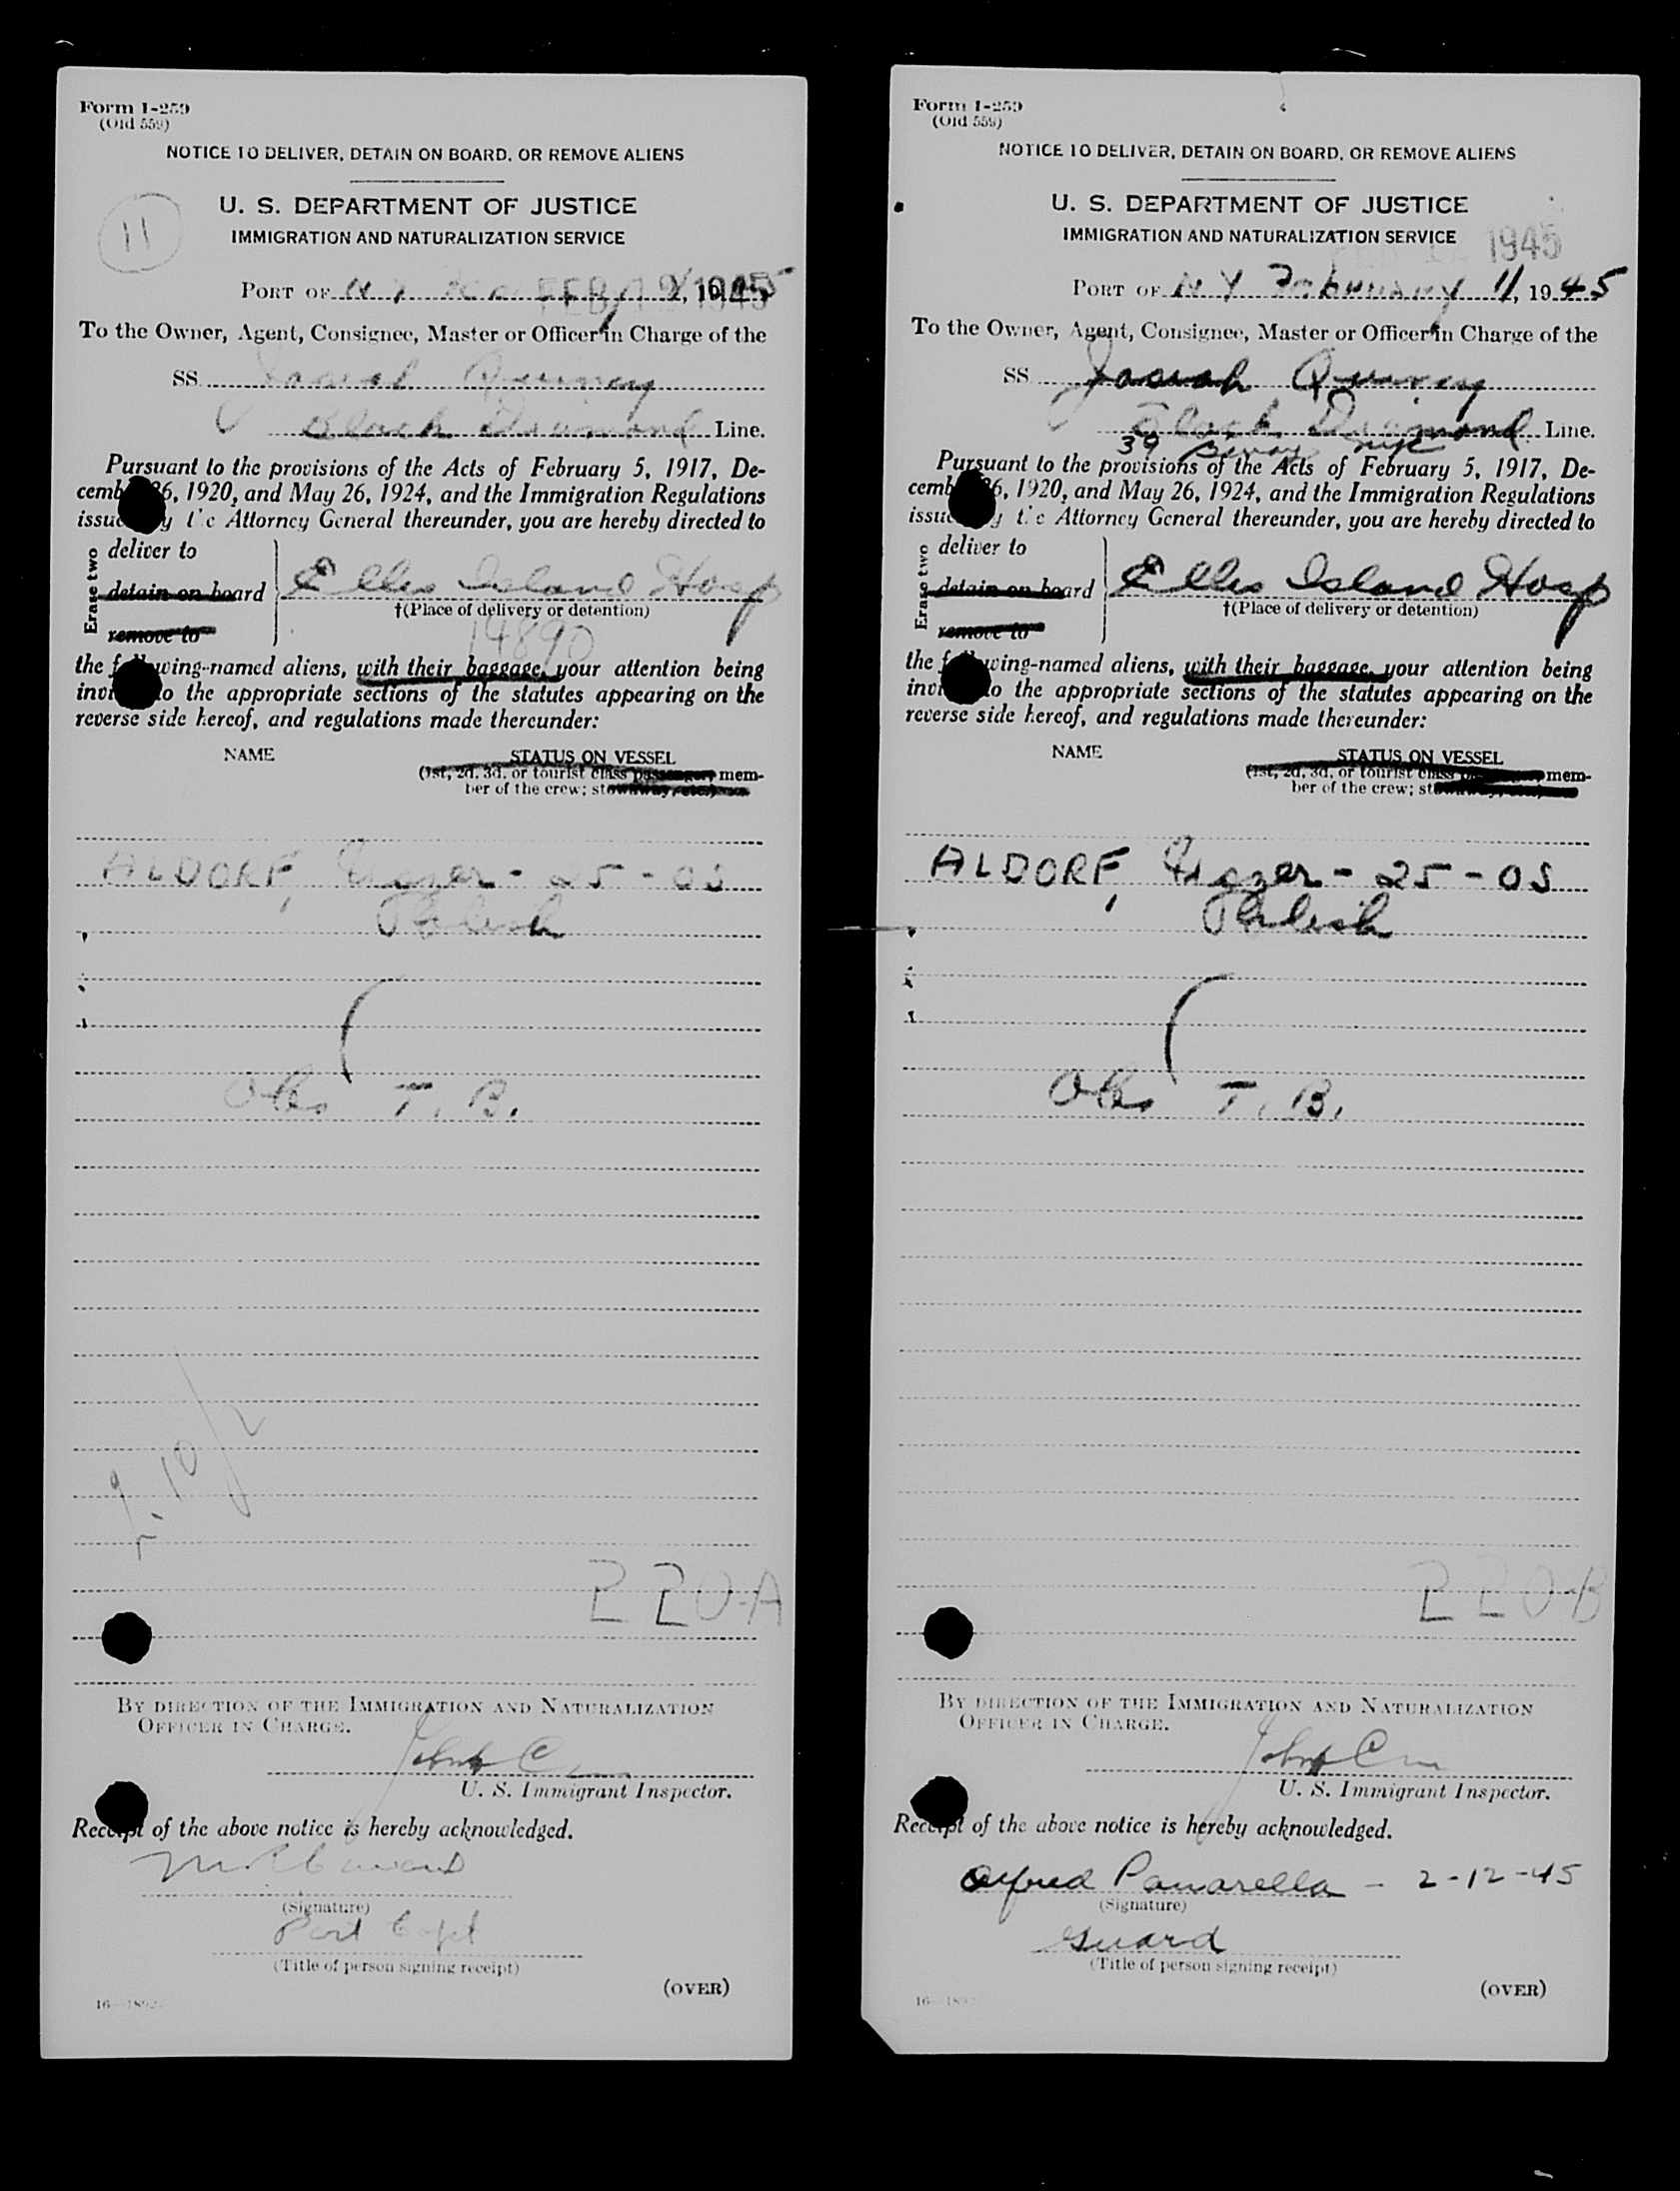 Form I-259
(Old 559)
NOTICE TO DELIVER, DETAIN ON BOARD, OR REMOVE ALIENS
U. S. DEPARTMENT OF JUSTICE
IMMIGRATION AND NATURALIZATION SERVICE
11
PORT OF N Y FEB 1945
To the Owner, Agent, Consignee, Master or Officer in Charge of the
SS Josiah Quincy
Black Diamond Line.
Pursuant to the provisions of the Acts of February 5, 1917, De-
cemb 26, 1920, and May 26, 1924, and the Immigration Regulations
issued by the Attorney General thereunder, you are hereby directed to
Erase two
deliver to
detain on board
remove to
Ellis Island Hosp
†(Place of delivery or detention)
14890
the following-named aliens, with their baggage, your attention being
invi to the appropriate sections of the statutes appearing on the
reverse side hereof, and regulations made thereunder:
NAME STATUS ON VESSEL
(1st, 2d, 3d, or tourist class passenger, mem-
ber of the crew; stowaway, etc.)
ALDORF, - 25 - OS
Polish
T. B.
220-A
BY DIRECTION OF THE IMMIGRATION AND NATURALIZATION
OFFICER IN CHARGE.
John C
U. S. Immigrant Inspector.
Receipt of the above notice is hereby acknowledged.
(Signature)
Port Capt
(Title of person signing receipt)
(OVER)
Form I-259
(Old 559)
NOTICE TO DELIVER, DETAIN ON BOARD, OR REMOVE ALIENS
U. S. DEPARTMENT OF JUSTICE
IMMIGRATION AND NATURALIZATION SERVICE
1945
PORT OF N Y February 11, 1945
To the Owner, Agent, Consignee, Master or Officer in Charge of the
SS Josiah Quincy
Black Diamond Line.
39 Bway NYC
Pursuant to the provisions of the Acts of February 5, 1917, De-
cemb 26, 1920, and May 26, 1924, and the Immigration Regulations
issued by the Attorney General thereunder, you are hereby directed to
Erase two
deliver to
detain on board
remove to
Ellis Island Hosp
†(Place of delivery or detention)
the following-named aliens, with their baggage, your attention being
invi to the appropriate sections of the statutes appearing on the
reverse side hereof, and regulations made thereunder:
NAME STATUS ON VESSEL
(1st, 2d, 3d, or tourist class mem-
ber of the crew; stowaway, etc.)
ALDORF, - 25 - OS
Polish
T. B.
220-B
BY DIRECTION OF THE IMMIGRATION AND NATURALIZATION
OFFICER IN CHARGE.
John C
U. S. Immigrant Inspector.
Receipt of the above notice is hereby acknowledged.
Alfred Panarella - 2-12-45
(Signature)
Guard
(Title of person signing receipt)
(OVER)